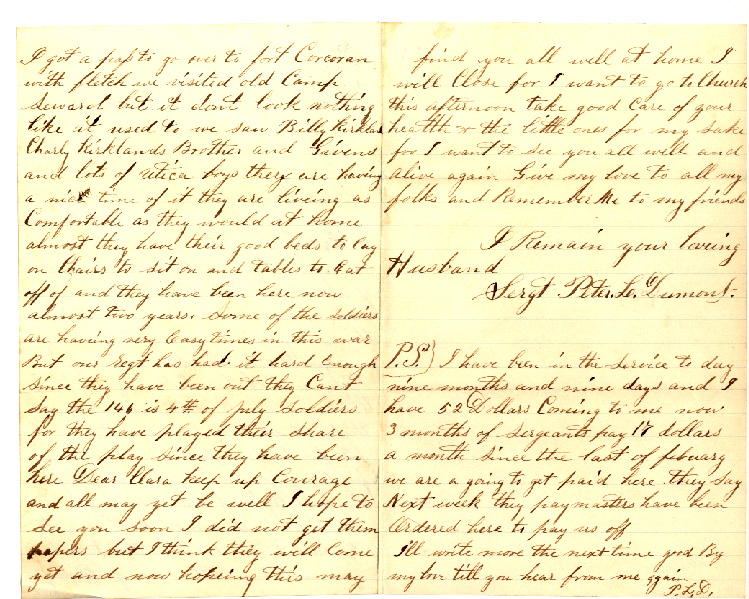 I got a pass to go over to fort Corcoran
with fletch we visited old Camp
Seward but it dont look nothing
like it used to we saw Billy Kirkland
Charly Kirklands Brother and Givens
and lots of utica boys they are having
a nice time of it they are liveing as
Comfortable as they would at home
almost they have their good beds to lay
on Chairs to sit on and tables to Eat
off of and they have been here now
almost two years. Some of the soldiers
are having very Easy times in this war
But our Regt has had it hard Enough
since they have been out they Cant
say the 146 is 4th of july soldiers
for they have played their share
of the play since they have been
here Dear Clara keep up Courage
and all may yet be well I hope to
see you soon I did not get them
papers but I think they will Come
yet and now hopeing this may
find you all well at home I
will Close for I want to go to Church
this afternoon take good Care of your
health & the little ones for my sake
for I want to see you all well and
alive again Give my love to all my
folks and Remember Me to my friends
I Remain your loveing
Husband
Sergt Peter L. Dumont.
P.S) I have been in the service to day
nine months and nine days and I
have 52 Dollars Coming to me now
3 months of sergeants pay 17 dollars
a month since the last of febuary
we are a going to get paid here they say
Next week they paymasters have been
Ordered here to pay us off
I'll write more the next time good By
my love till you hear from me again
P.L.D.